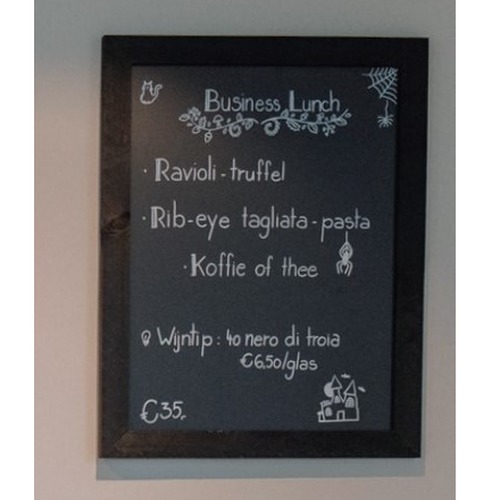 Business Lunch
· Ravioli - truffel
· Rib-eye tagliata - pasta
· Koffie of thee
Wijntip : 40 nero di troia
€6,50/glas
€35,-